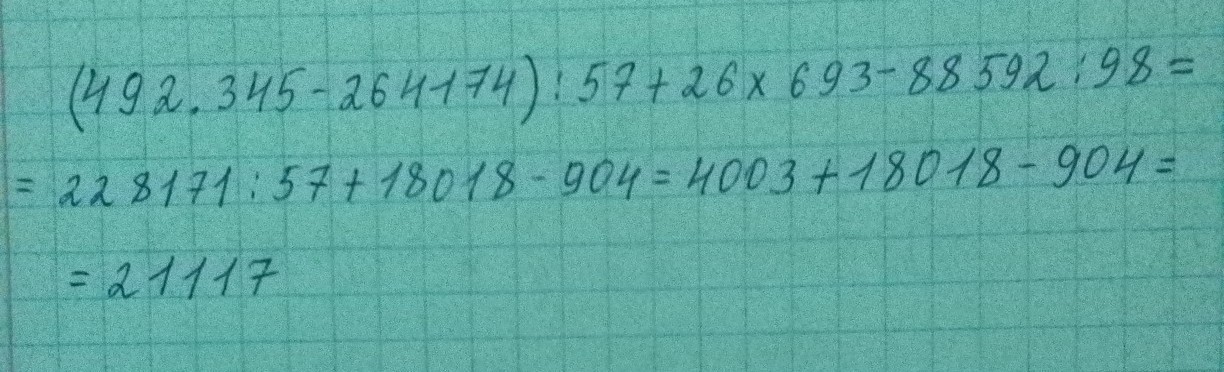 (492.345-264174):57+26x693-88592:98=
=228171:57+18018-904=4003+18018-904=
=21117